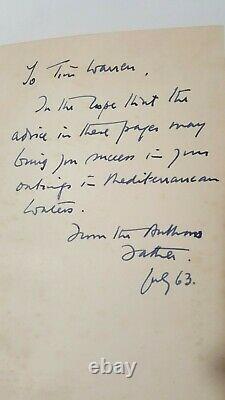 To Tim Warren,
In the hope that the
advice in these pages may
bring you success in your
outings in Mediterranean
Waters.
From the Authors
Father.
July 63.
ebay